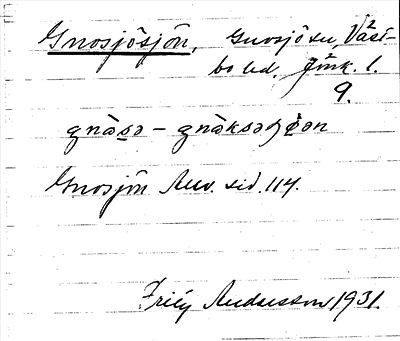 Gnosjösjön, Gnosjö sn, Väst-
bo hd. Jönk. l.
9.
gnàsə – gnàksəʒøən
Gnosjön Arv. sid. 114.
Frity Andersson 1931.